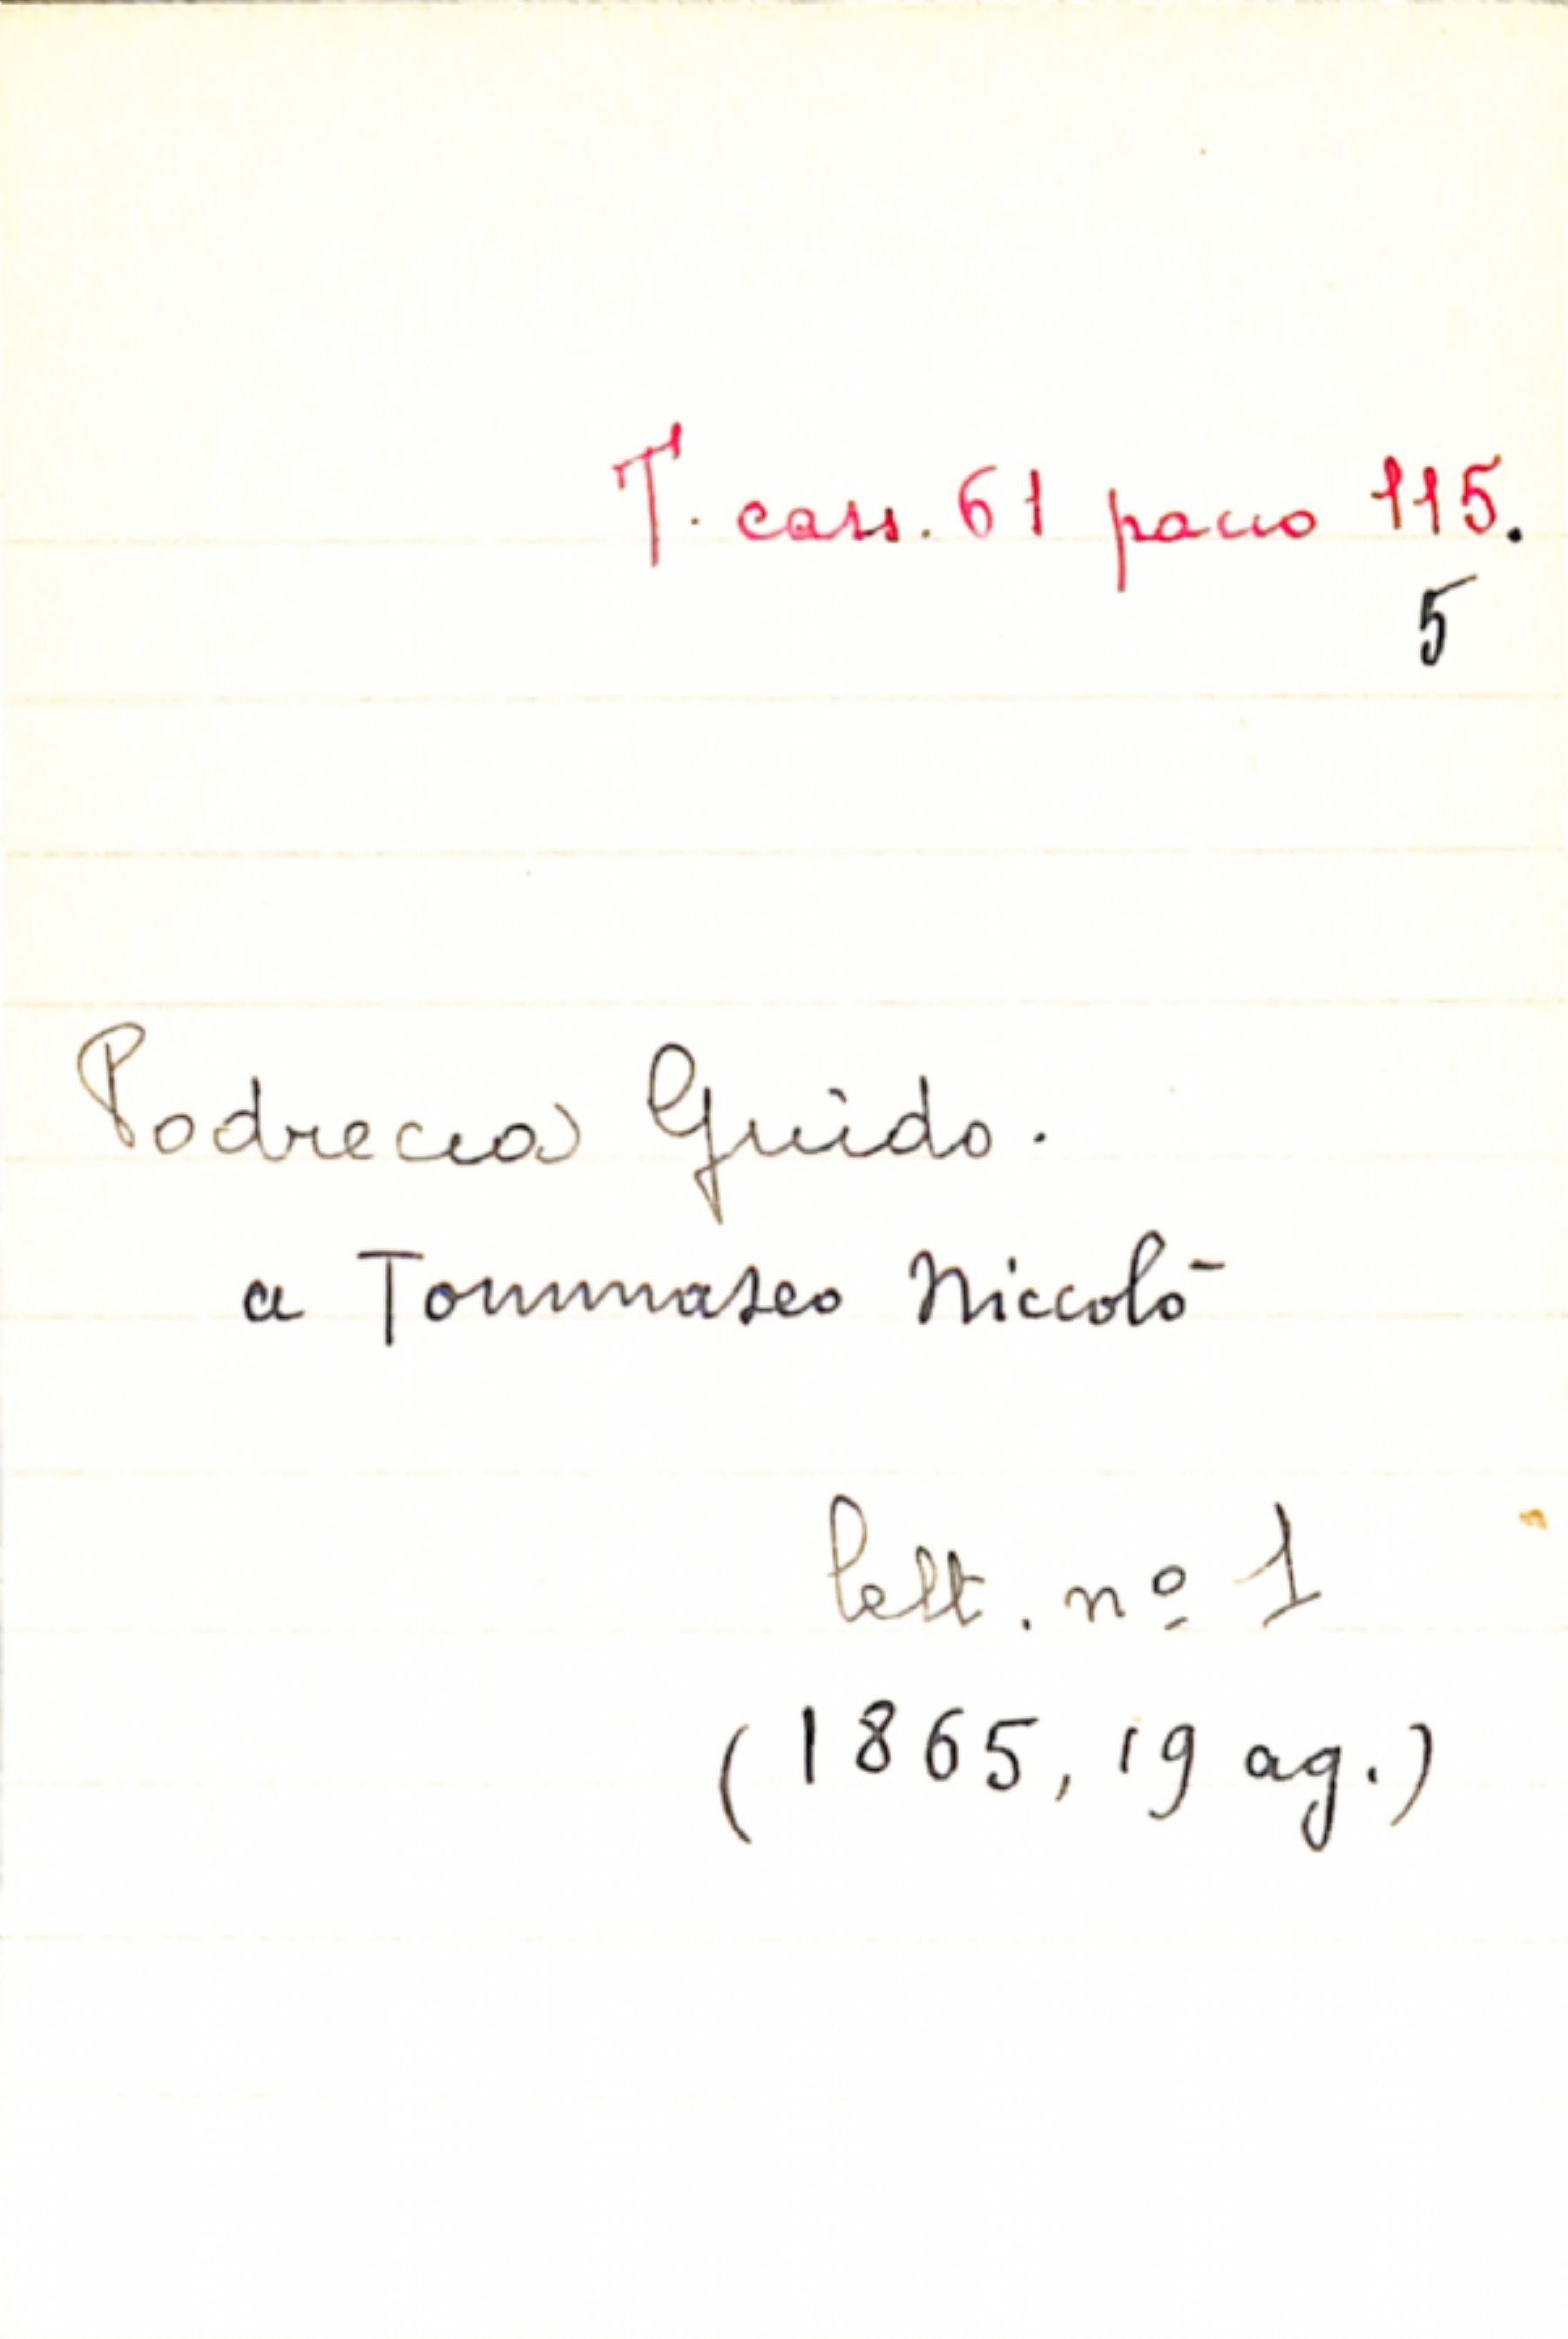 T. cass. 61 pacco 115.
5
Podrecca Guido.
a Tommaseo Niccolò
lett. nº 1
(1865, 19 ag.)